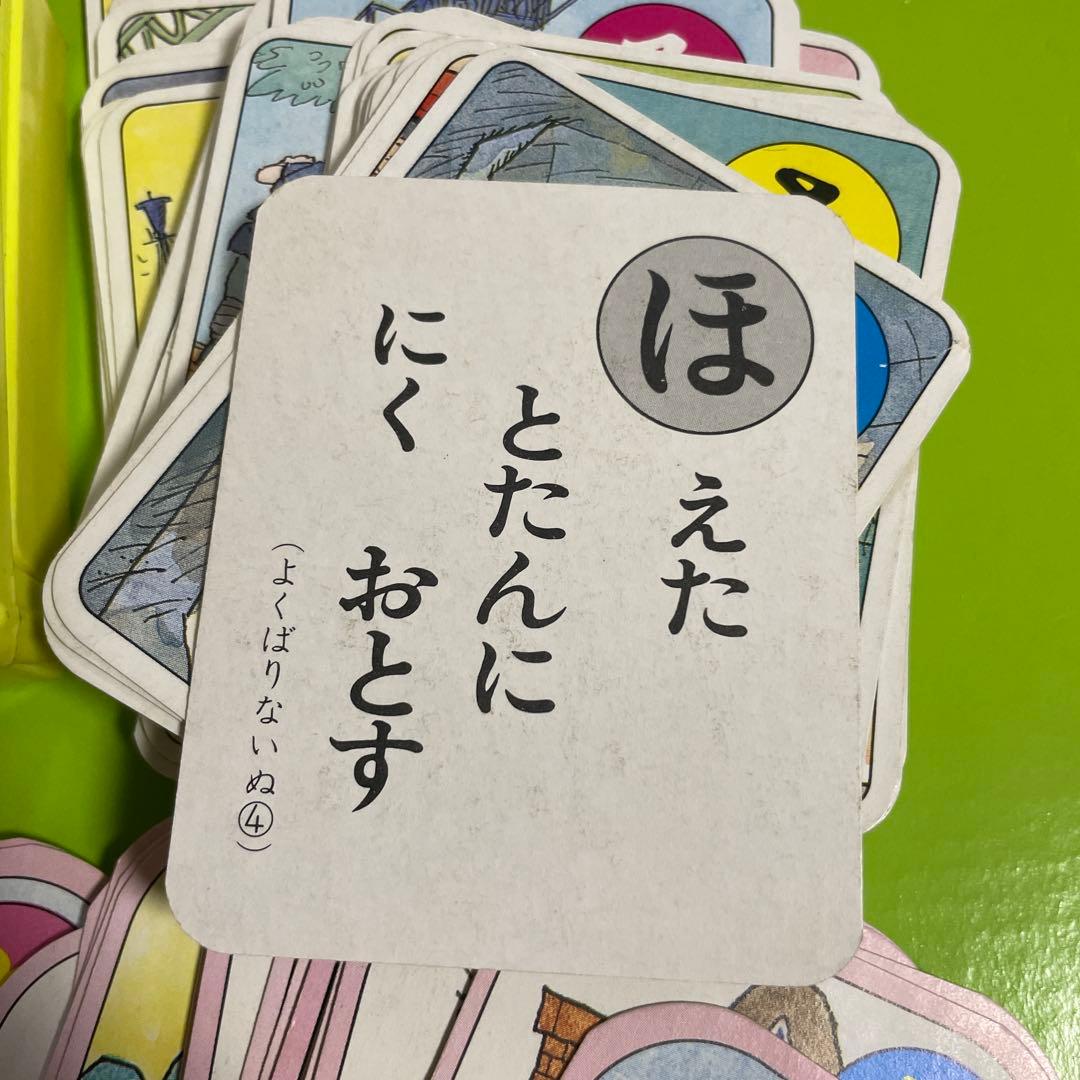 ほえた
とたんに
にく おとす
(よくばりないぬ④)